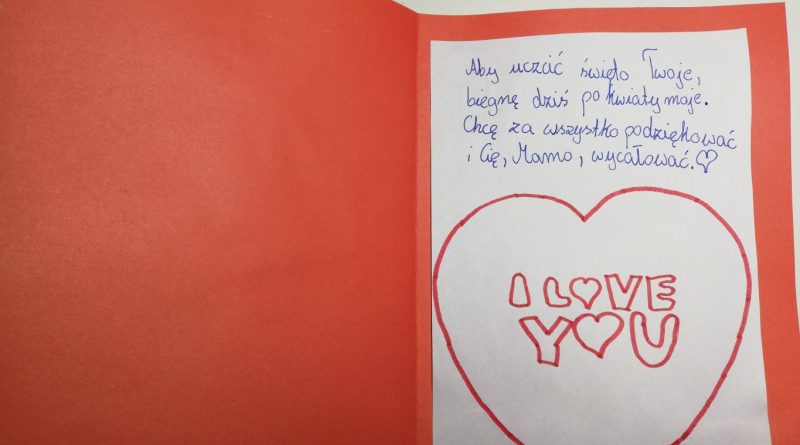 Aby uczcić święto Twoje,
biegnę dziś po kwiaty moje.
Chcę za wszystko podziękować
i Cię, Mamo, wycałować.♡
I LOVE
YOU